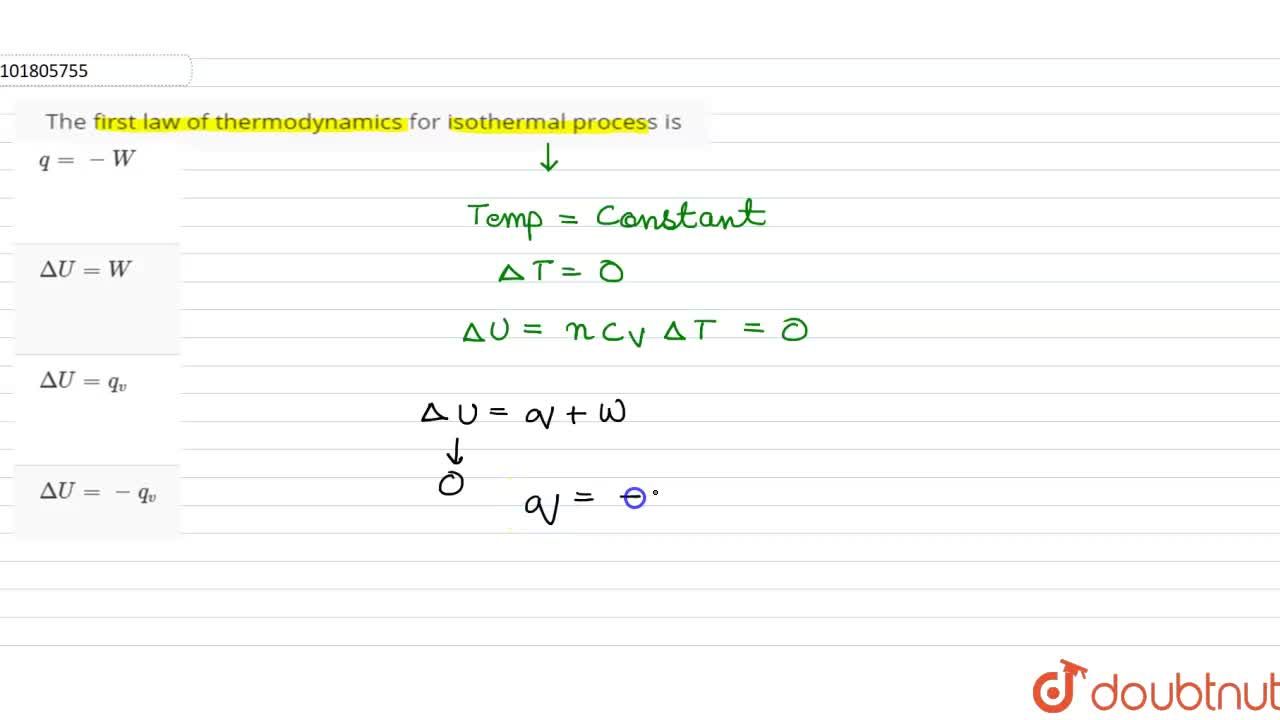 101805755
The first law of thermodynamics for isothermal process is
q = − W
ΔU = W
ΔU = qᵥ
ΔU = − qᵥ
↓
Temp = Constant
ΔT = 0
ΔU = n Cv ΔT = 0
ΔU = q + W
↓
0
q = −
doubtnut